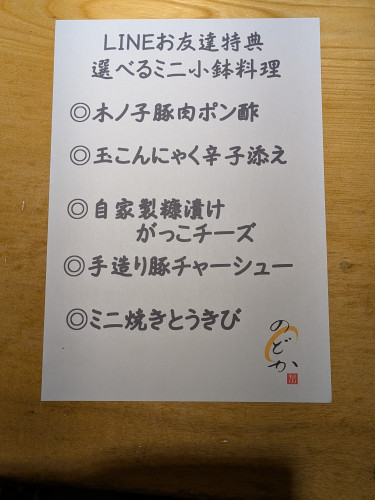 LINEお友達特典
選べるミニ小鉢料理
◎木ノ子豚肉ポン酢
◎玉こんにゃく辛子添え
◎自家製糠漬け
がっこチーズ
◎手造り豚チャーシュー
◎ミニ焼きとうきび
のどか